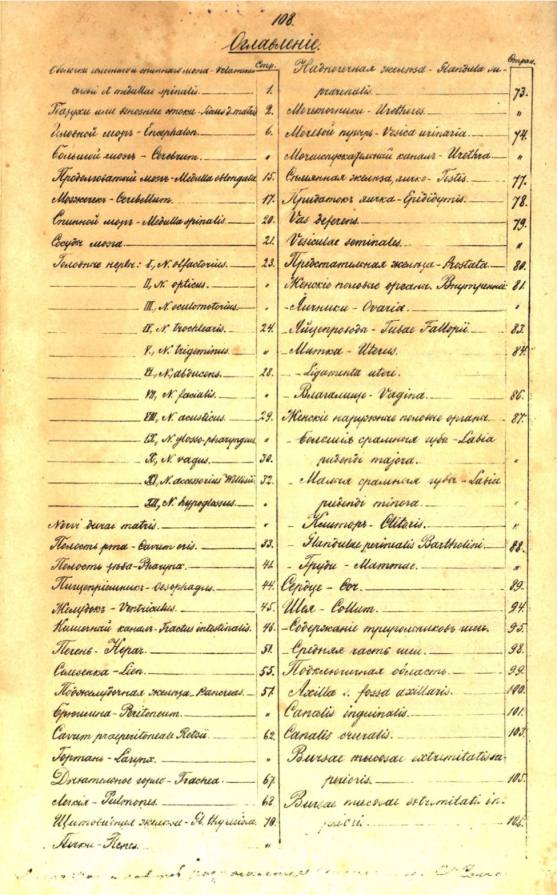 108.
Оглавленіе.
Стр.
Оболочки головного и спиннаго мозга - Velamenta
cerebri et medullae spinalis. 1.
Пазухи или венозные стоки - Sinus d. matris 2.
Головной мозгъ - Encephalon. 6.
Большой мозгъ - Cerebrum. "
Продолговатый мозгъ - Medulla oblongata 15.
Мозжечекъ - Cerebellum. 17.
Спинной мозгъ - Medulla spinalis. 20.
Сосуды мозга 21.
Головные нервы: I, N. olfactorius. 23.
II, N. opticus. "
III, N. oculomotorius. "
IV, N. trochlearis. 24.
V, N. trigeminus "
VI, N. abducens. 28.
VII, N. facialis. "
VIII, N. acusticus. 29.
IX, N. glosso-pharyngeus "
X, N. vagus. 30.
XI, N. accessorius Willisii. 32.
XII, N. hypoglossus. "
Nervi durae matris. "
Полость рта - Cavum oris. 33.
Полость зѣва - Pharynx. 41.
Пищепріемникъ - Oesophagus. 44.
Желудокъ - Ventriculus. 45.
Кишечный каналъ - Tractus intestinalis. 46.
Печень - Hepar. 51.
Селезенка - Lien. 55.
Поджелудочная железа - Pancreas. 57.
Брюшина - Peritoneum. "
Cavum praeperitoneale Retzii. 62.
Гортань - Larynx. "
Дыхательное горло - Trachea. 67.
Легкія - Pulmones. 68
Щитовидная железа - Gl. thyreoidea. 70.
Почки - Renes. "
Стран.
Надпочечная железа - Glandula su-
prarenalis. 73.
Мочеточники - Uretheres. "
Мочевой пузырь - Vesica urinaria. 74.
Мочеиспускательный каналъ - Urethra "
Сѣмянная железа, яичко - Testis. 77.
Придатокъ яичка - Epididymis. 78.
Vas deferens. 79.
Vesiculae seminales. "
Предстательная железа - Prostata. 80.
Женскіе половые органы. Внутренніе 81.
- Яичники - Ovaria. "
- Яйцепровода - Tubae Fallopii. 83.
- Матка - Uterus. 84.
- Ligamenta uteri. "
- Влагалище - Vagina. 86.
Женскіе наружные половые органы. 87.
- Большія срамныя губы - Labia
pudendi majora. "
- Малыя срамныя губы - Labia
pudendi minora. "
- Клиторъ - Clitoris. "
- Glandulae perinealis Bartholini. 88.
- Груди - Mammae. "
Сердце - Cor. 89.
Шея - Collum. 94.
- Содержаніе треугольниковъ шеи. 95.
- Средняя часть шеи. 98.
- Подключичная область. 99.
Axilla s. fossa axillaris. 100.
Canalis inguinalis. 101.
Canalis cruralis. 103.
Bursae mucosae extremitatis su-
perioris. 105.
Bursae mucosae extremitati in-
ferioris. 106.